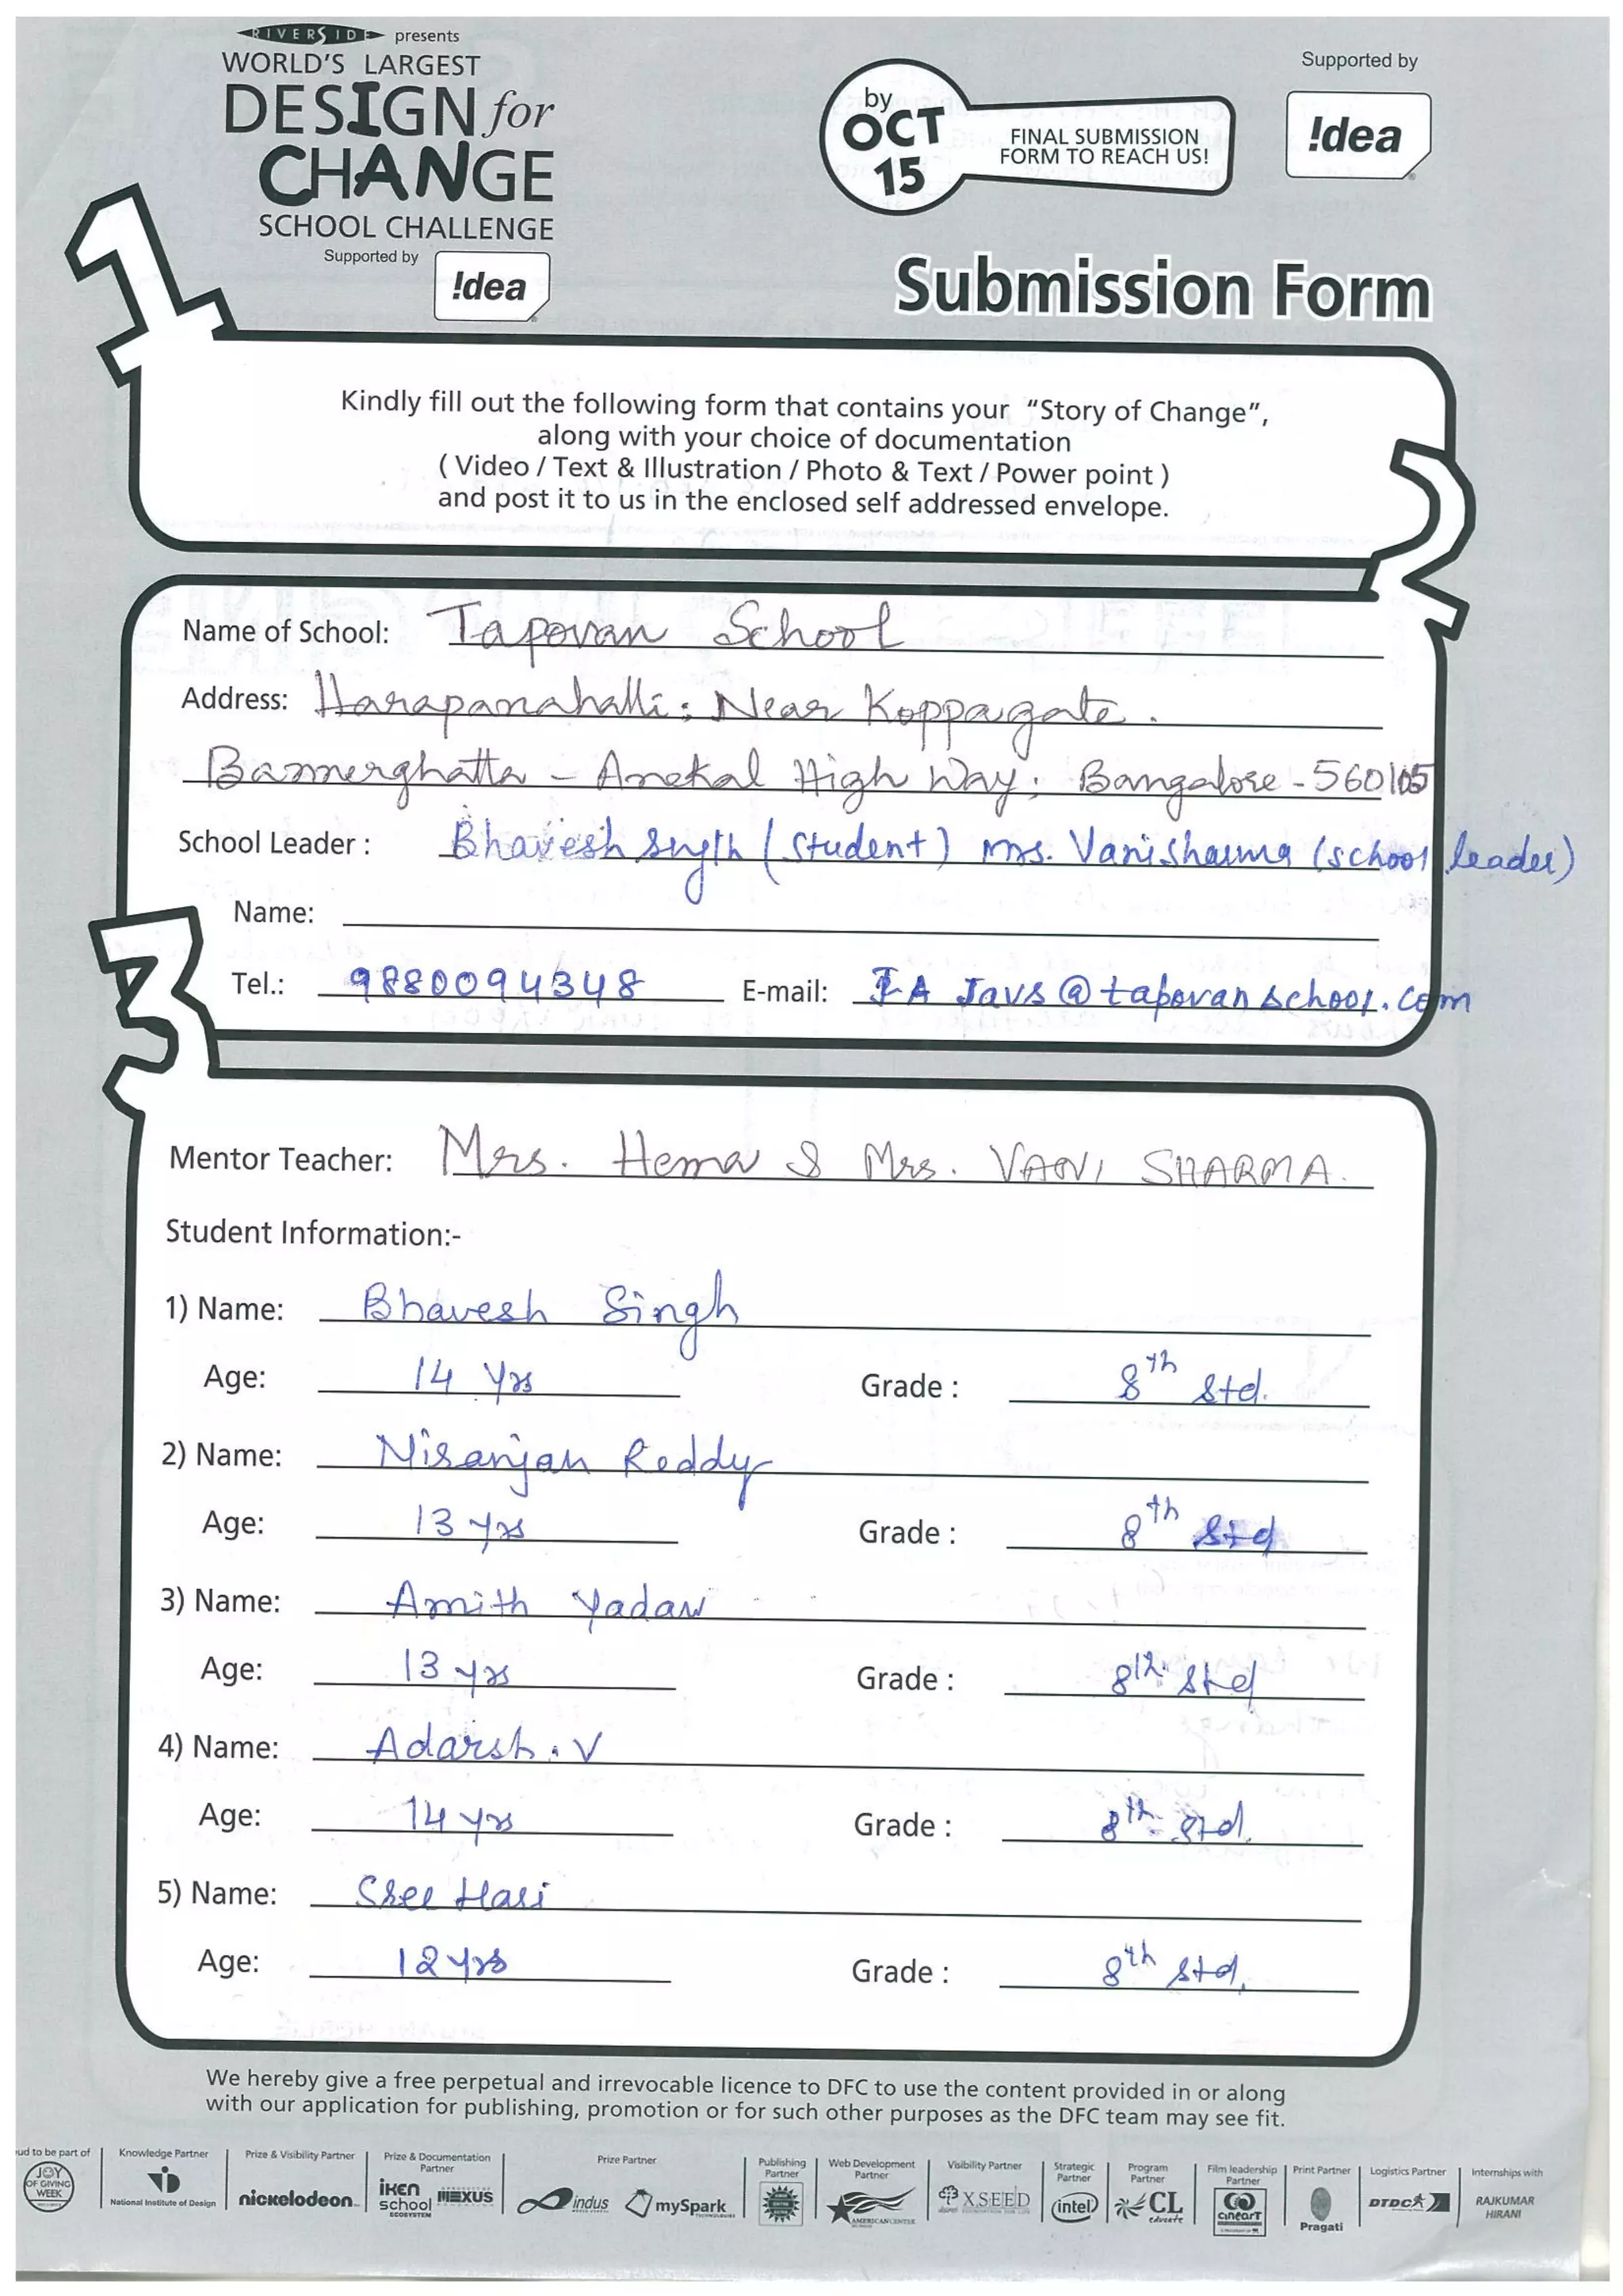 RIVERSIDE presents
WORLD'S LARGEST
DESIGN for
CHANGE
SCHOOL CHALLENGE
Supported by
!dea
by
OCT
15
FINAL SUBMISSION
FORM TO REACH US!
Supported by
!dea
Submission Form
1
Kindly fill out the following form that contains your "Story of Change",
along with your choice of documentation
( Video / Text & Illustration / Photo & Text / Power point )
and post it to us in the enclosed self addressed envelope.
2
Name of School: Tapovan School
Address: Harapanahalli; Near Koppagate.
Bannerghatta - Anekal High Way; Bangalore - 560105
School Leader : Bhavesh Singh (Student) Mrs. Vani Sharma (school leader)
Name:
Tel.: 9880094348 E-mail: @tapovanschool.com
3
Mentor Teacher: Mrs. Hema & Mrs. VANI SHARMA.
Student Information:-
1) Name: Bhavesh Singh
Age: 14 Yrs Grade : 8th Std.
2) Name: Niranjan Reddy
Age: 13 yrs Grade : 8th Std
3) Name: Amith Yadav
Age: 13 yrs Grade : 8th Std
4) Name: Adarsh . V
Age: 14 yrs Grade : 8th Std.
5) Name: Sree Hari
Age: 12 yrs Grade : 8th Std.
We hereby give a free perpetual and irrevocable licence to DFC to use the content provided in or along
with our application for publishing, promotion or for such other purposes as the DFC team may see fit.
ud to be part of
JOY
OF GIVING
WEEK
Knowledge Partner
National Institute of Design
Prize & Visibility Partner
nickelodeon
Prize & Documentation
Partner
iKEN
school
ECOSYSTEM
MEXUS
Prize Partner
indus
mySpark
Publishing
Partner
Web Development
Partner
AMERICANCENTER
Visibility Partner
XSEED
Strategic
Partner
intel
Program
Partner
CL
educate
Film leadership
Partner
cinearT
Print Partner
Pragati
Logistics Partner
DTDC
Internships with
RAJKUMAR
HIRANI